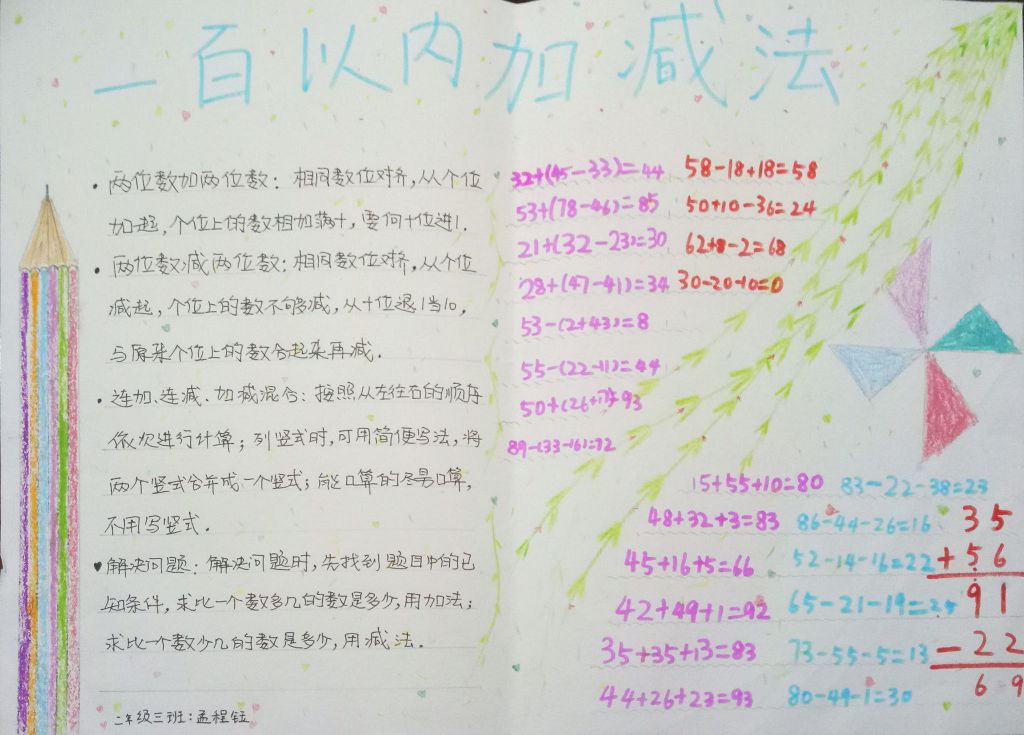 一百以内加减法
·两位数加两位数：相同数位对齐，从个位
加起，个位上的数相加满十，要向十位进1.
·两位数减两位数：相同数位对齐，从个位
减起，个位上的数不够减，从十位退1当10，
与原来个位上的数合起来再减.
·连加、连减、加减混合：按照从左往右的顺序
依次进行计算；列竖式时，可用简便写法，将
两个竖式合并成一个竖式；能口算的尽量口算，
不用写竖式.
♥解决问题：解决问题时，先找到题目中的已
知条件，求比一个数多几的数是多少，用加法；
求比一个数少几的数是多少，用减法.
二年级三班：孟程钰
32+(45-33)=44
53+(78-46)=85
21+(32-23)=30
28+(47-41)=34
53-(2+43)=8
55-(22-11)=44
50+(26+17)=93
89-(33-16)=72
58-18+18=58
50+10-36=24
62+8-2=68
30-20-10=0
15+55+10=80
48+32+3=83
45+16+5=66
42+49+1=92
35+35+13=83
44+26+23=93
83-22-38=23
86-44-26=16
52-14-16=22
65-21-19=25
73-55-5=13
80-49-1=30
35
+56
91
-22
69